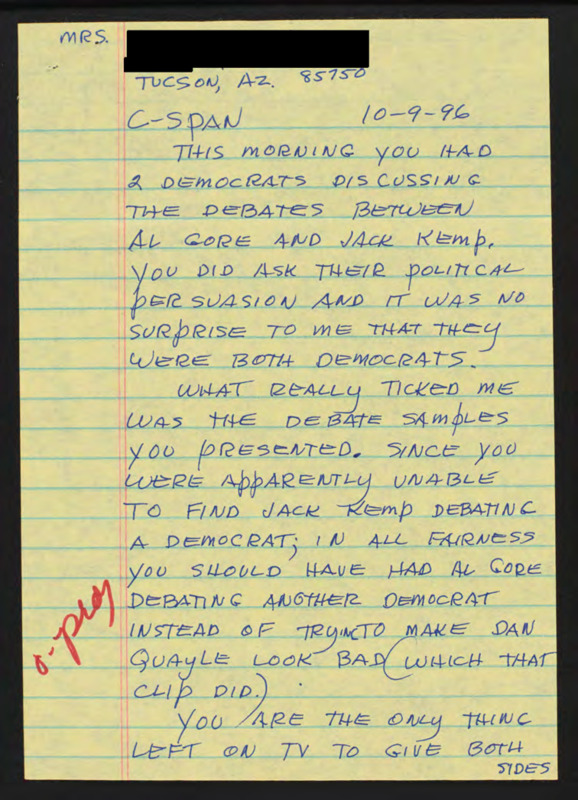 MRS.
TUCSON, AZ. 85750
C-SPAN 10-9-96
THIS MORNING YOU HAD
2 DEMOCRATS DISCUSSING
THE DEBATES BETWEEN
AL GORE AND JACK KEMP.
YOU DID ASK THEIR POLITICAL
PERSUASION AND IT WAS NO
SURPRISE TO ME THAT THEY
WERE BOTH DEMOCRATS.
WHAT REALLY TICKED ME
WAS THE DEBATE SAMPLES
YOU PRESENTED. SINCE YOU
WERE APPARENTLY UNABLE
TO FIND JACK KEMP DEBATING
A DEMOCRAT; IN ALL FAIRNESS
YOU SHOULD HAVE HAD AL GORE
DEBATING ANOTHER DEMOCRAT
INSTEAD OF TRYING TO MAKE DAN
QUAYLE LOOK BAD (WHICH THAT
CLIP DID.)
YOU ARE THE ONLY THING
LEFT ON TV TO GIVE BOTH
SIDES